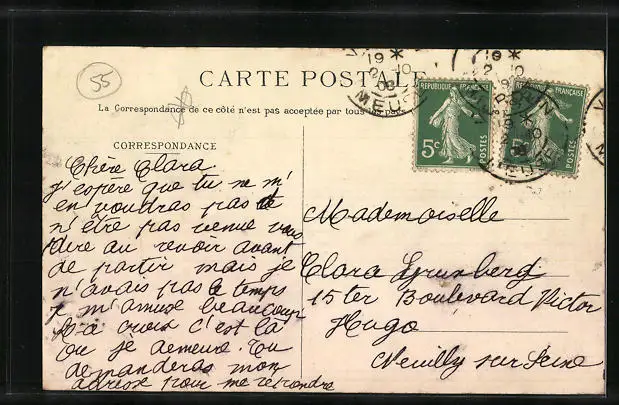 55
CARTE POSTALE
La Correspondance de ce côté n'est pas acceptée par tous les pays
CORRESPONDANCE
Chère Clara
j'espère que tu ne m'
en voudras pas de
n'être pas venue vous
dire au revoir avant
de partir mais je
n'avais pas le temps
je m'amuse beaucoup
la croix c'est là
ou je demeure. Tu
demanderas mon
adresse pour me répondre
Mademoiselle
Clara Grunberg
15 ter Boulevard Victor
Hugo
Neuilly sur Seine
REPUBLIQUE FRANÇAISE
5c
POSTES
REPUBLIQUE FRANÇAISE
5c
POSTES
19 *
2-10
08
MEUSE
19 *
2-10
MEUSE